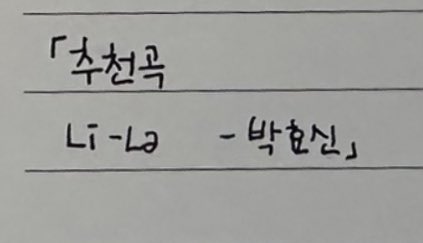 「추천곡
Li-La -박효신」